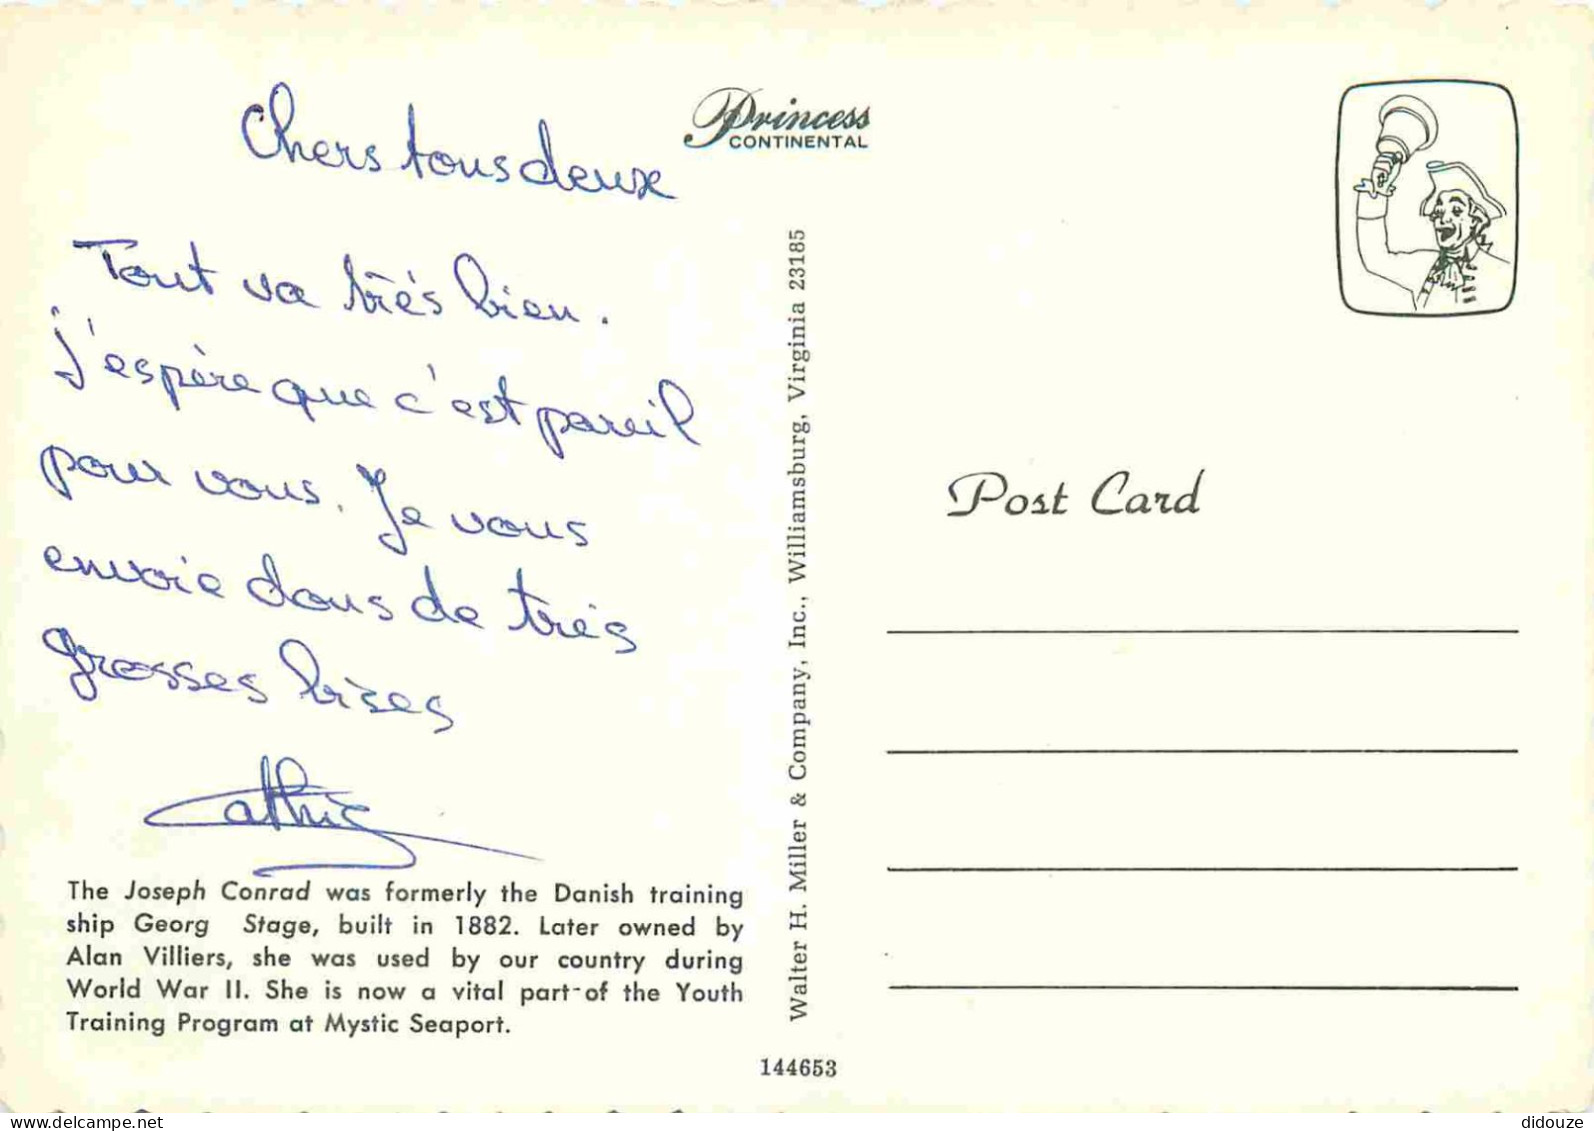 Chers tous deux
Tout va très bien.
J'espère que c'est pareil
pour vous. Je vous
envoie dous de très
grosses bises
Cathie
The Joseph Conrad was formerly the Danish training
ship Georg Stage, built in 1882. Later owned by
Alan Villiers, she was used by our country during
World War II. She is now a vital part-of the Youth
Training Program at Mystic Seaport.
Princess
CONTINENTAL
Walter H. Miller & Company, Inc., Williamsburg, Virginia 23185
144653
Post Card
didouze